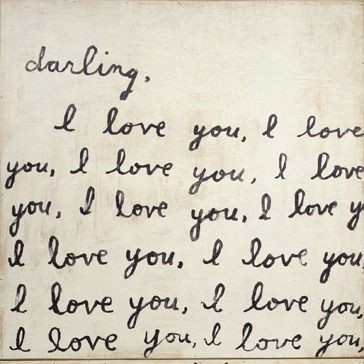 darling,
I love you, I love
you, I love you, I love
you, I love you, I love y
I love you, I love you
I love you, I love you,
I love you, I love you,